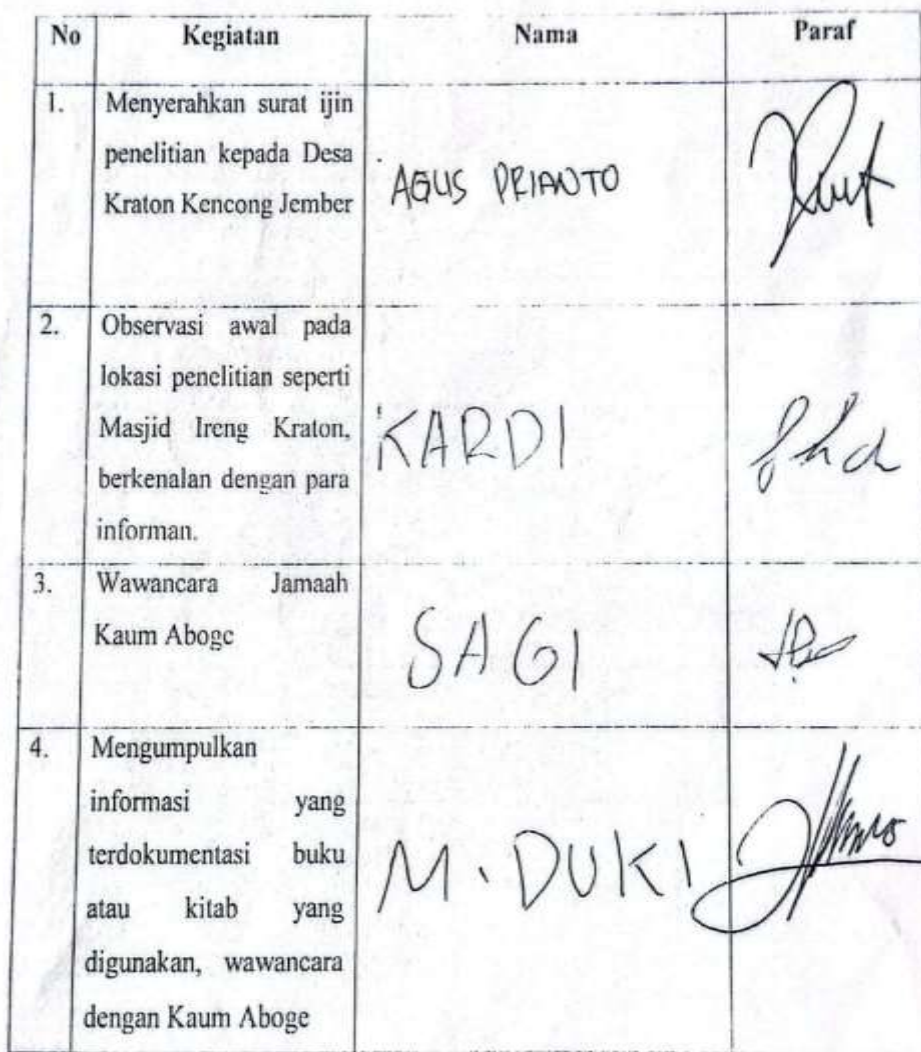 No Kegiatan Nama Paraf
1. Menyerahkan surat ijin
penelitian kepada Desa
Kraton Kencong Jember
AGUS PRIANTO
2. Observasi awal pada
lokasi penelitian seperti
Masjid Ireng Kraton,
berkenalan dengan para
informan.
KARDI
3. Wawancara Jamaah
Kaum Aboge
SAGI
4. Mengumpulkan
informasi yang
terdokumentasi buku
atau kitab yang
digunakan, wawancara
dengan Kaum Aboge
M. DUKI